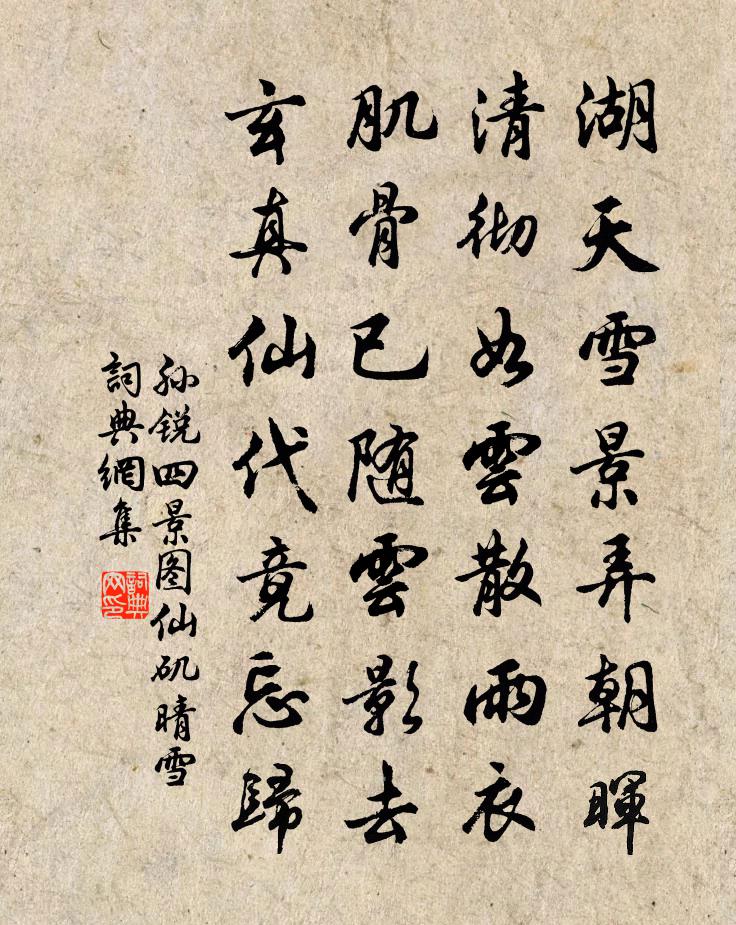 湖天雪景弄朝暉
清彻如雲散雨衣
肌骨已随雲影去
玄真仙代竟忘歸
孙锐四景图仙矶晴雪
詞典網集
詞典网印